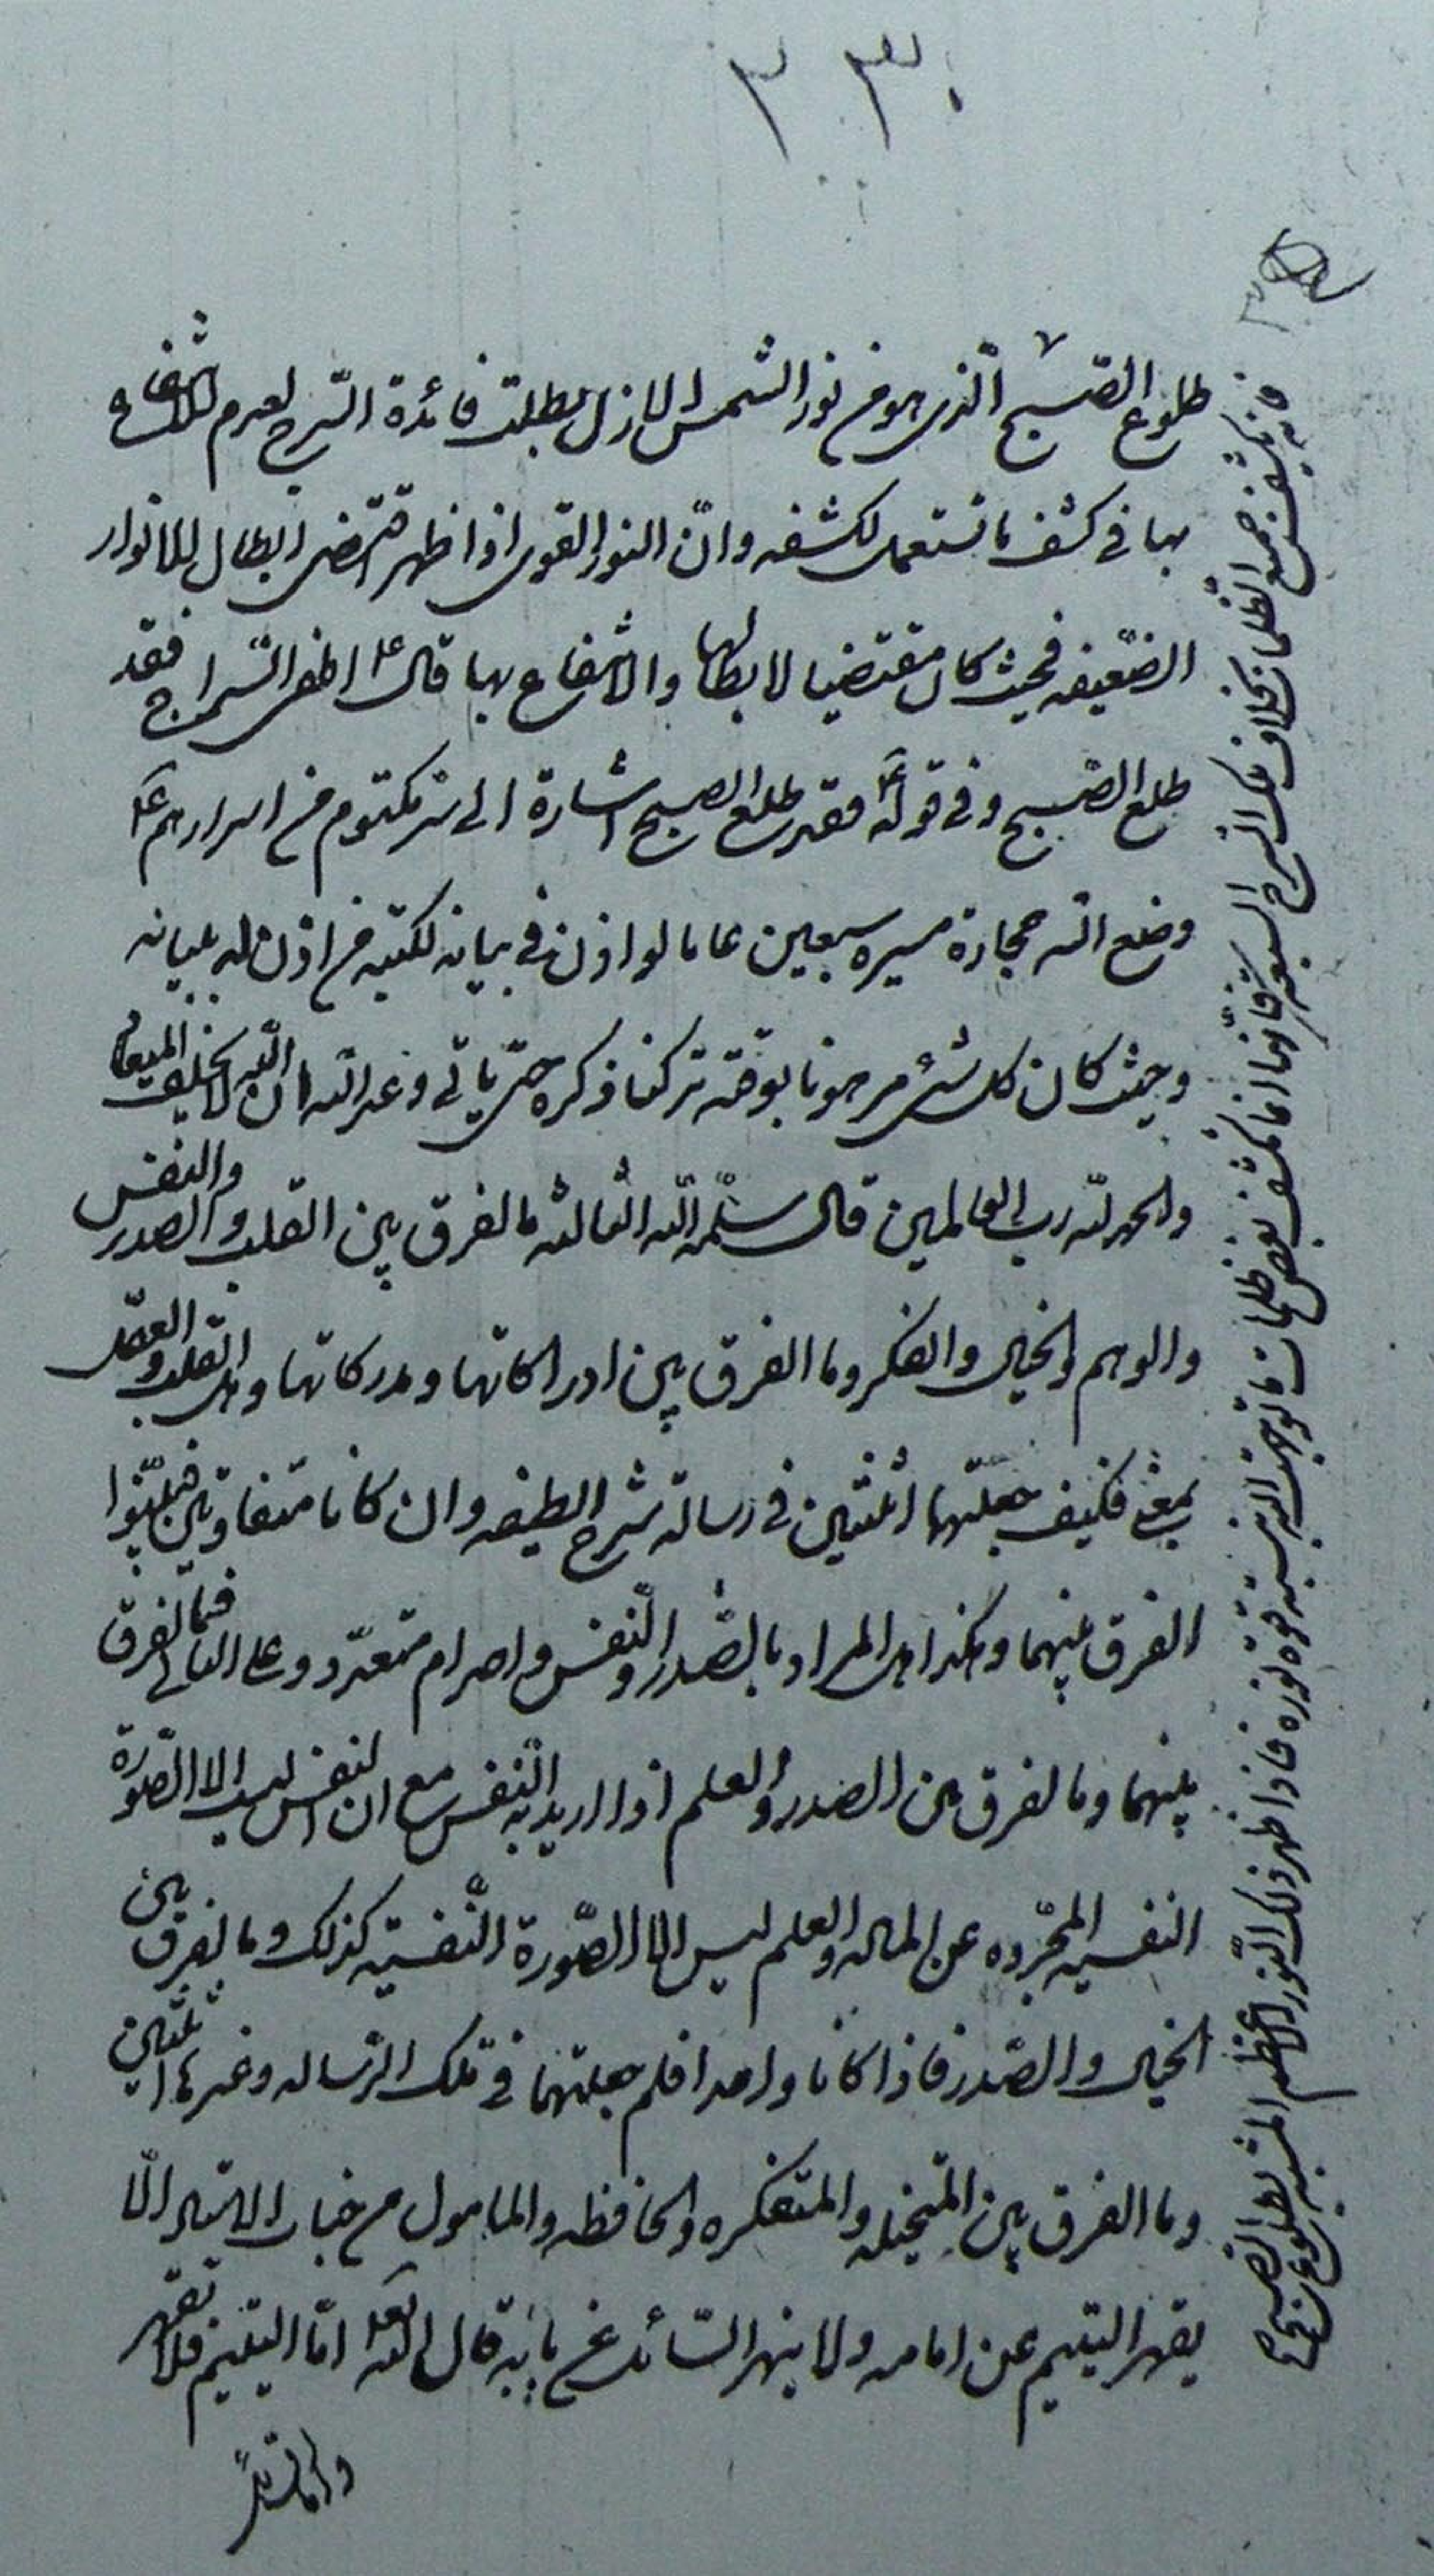 ٢ ٣٠
طلوع الصّبح الّذى هو من نور الشمس الازل بطلت فائدة السّرج لعدم الانتفاع
بها فى كشف ما تستعمل لكشفه وانّ النور القوى اذا ظهر اقتضى ابطال الانوار
الضّعيفه فحيث كان مقتضيا لابطالها والانتفاع بها قال ع اطف السّراج فقد
طلع الصّبح وفى قوله ع فقد طلع الصبح اشارة الى سر مكتوم من اسرارهم ع
وضع الله حجابه مسيره سبعين عاما لو اذن فى بيانه لكتبه من اذن له ببيانه
وحيث كان كل شئ مرهونا بوقته تركنا ذكره حتى ياتى وعد الله ان الله لا يخلف الميعاد
والحمد لله رب العالمين قال سلّمه الله الثالثه ما الفرق بين القلب والصدر والنفس
والوهم والخيال والفكر وما الفرق بين ادراكاتها ومدركاتها وهل القلب والعقل
بمعنى فكيف جعلتهما اثنتين فى رسالة شرح الطيفه وان كانا متفاوتين فبيّنوا
الفرق بينهما وهكذا هل المراد بالصّدر والنفس واحد ام متعدّد وعلى الثانى فما الفرق
بينهما وما لفرق بين الصدر والعلم اذا اريد به النفس مع ان النفس ليس الا الصّورة
النفسيه المجرّده عن الماده والعلم ليس الا الصّورة النّفسيّه كذلك وما لفرق بين
الخيال والصّدر فاذا كانا واحدا فلم جعلتهما فى تلك الرساله وغيرها اثنين
وما الفرق بين المتخيله والمتفكره والحافظه والمامول من جناب الاستاد الّا
يقهر اليتيم عن امامه ولا ينهر السّائل عن بابه قال الله تعالى امّا اليتيم فلا تقهر
وامّا السّائل
فانه يكشف جميع الظلمات بخلاف تلك السرج السبعة فانها انما تكشف بعض ظلمات ما توجهت اليه بنسبة قوة نوره فاذا ظهر ذلك النّور الاعظم المشبه بطلوع الصبح